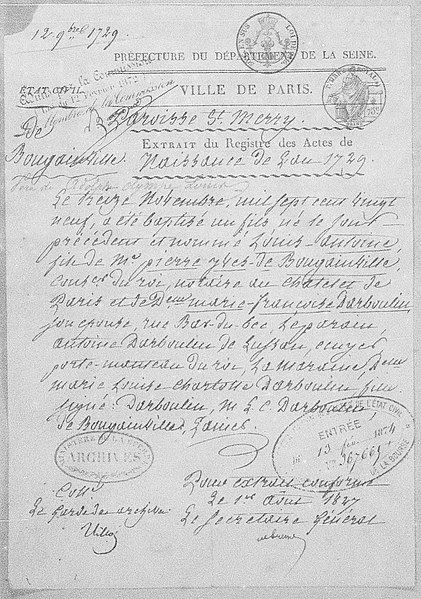 12 9bre 1729
PRÉFECTURE DU DÉPARTEMENT DE LA SEINE.
ÉTAT CIVIL.
VILLE DE PARIS.
Paroisse St. Merry.
De
Bougainville
EXTRAIT du Registre des Actes de
Naissance de L'an 1729.
Le treize Novembre, mil sept cent vingt
neuf, a été baptisé un fils né le jour
précédent et nommé Louis-Antoine,
fils de Mr. pierre yves de Bougainville,
conser. du roi, notaire au chatelet de
Paris et de Deme marie-francoise Darboulin
son epouse, rue Bar-du-bec, Le parain,
Antoine Darboulin de Lussan ecuyer
porte-manteau du roi, La maraine, Deme
marie Louise Charlotte Darboulin
signé: Darboulin, M L C Darboulin
de Bougainville,
ARCHIVES
DE L'ÉTAT CIVIL
ENTRÉE
13 1874
No 367661
DE LA BOURSE
Pour extrait conforme
Le 1er Août 1827
Le Secrétaire Général
Le Garde des archives